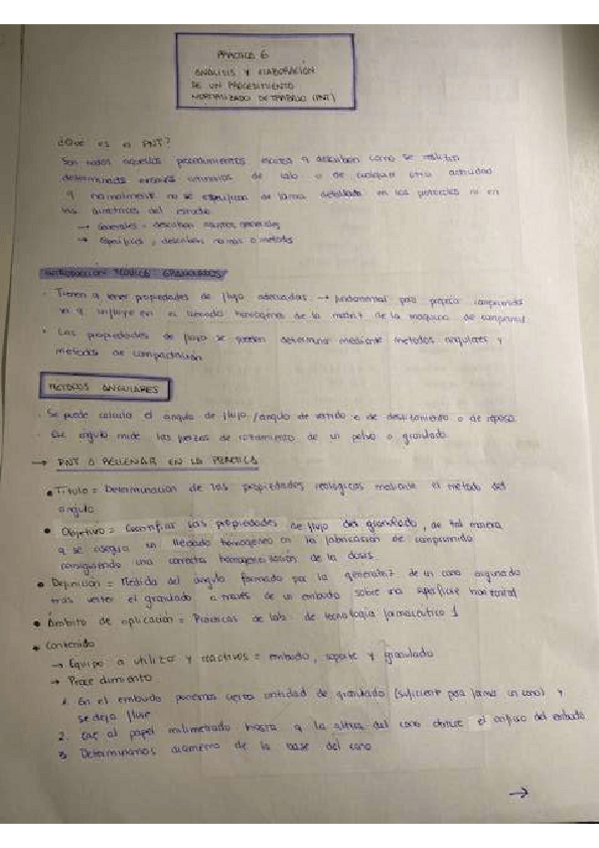 PRÁCTICA 6
ANÁLISIS Y ELABORACIÓN
DE UN PROCEDIMIENTO
NORMALIZADO DE TRABAJO (PNT)
¿Qué es PNT?
Son todos aquellos procedimientos escritos q describen como se realizan
determinados ensayos rutinarios de lab o de cualquier otra actividad
q normalmente no se especifican de forma detallada en los protocolos ni en
las directrices del estudio
→ Generales = describen asuntos generales
→ Específicos, describen normas o métodos
INTRODUCCIÓN TEÓRICA GRANULADOS
· Tienen q tener propiedades de flujo adecuadas → fundamental para preparar comprimidos
ya q influye en el llenado homogéneo de la matriz de la maquina de comprimir
· Las propiedades de flujo se pueden determinar mediante métodos angulares y
métodos de compactación
MÉTODOS ANGULARES
· Se puede calcular el angulo de flujo / angulo de vertido o de deslizamiento o de reposo
· Ese angulo mide las fuerzas de rozamiento de un polvo o granulado
→ PNT A RELLENAR EN LA PRÁCTICA
• Título = Determinación de las propiedades reológicas mediante el método del
angulo
• Objetivo = las propiedades de flujo del granulado, de tal manera
q se asegura un llenado homogéneo en la fabricación de comprimido
consiguiendo una correcta homogeneización de la dosis
• Definición = Medida del ángulo formado por la generatriz de un cono originado
tras verter el granulado a través de un embudo sobre una superficie horizontal
• Ámbito de aplicación = Prácticas de lab. de tecnología farmacéutica 1
• Contenido
→ Equipo a utilizar y reactivos = embudo, soporte y granulado
→ Procedimiento
1. En el embudo ponemos cierta cantidad de granulado (suficiente para formar un cono) y
se deja fluir
2. Cae al papel milimetrado hasta q la altura del cono el orificio del embudo
3. Determinamos diametro de la base del cono
→